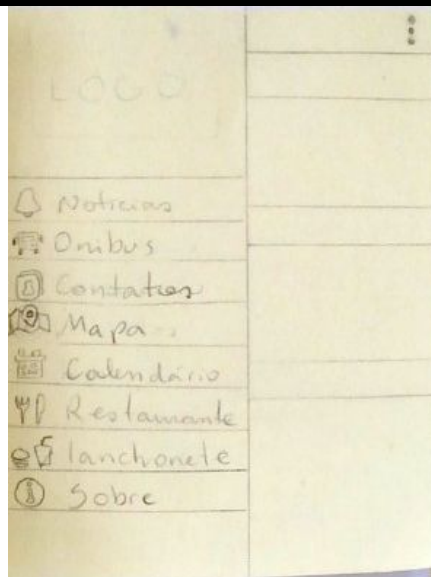 LOGO
Noticias
Onibus
Contatos
Mapa
Calendário
Restaurante
lanchonete
Sobre